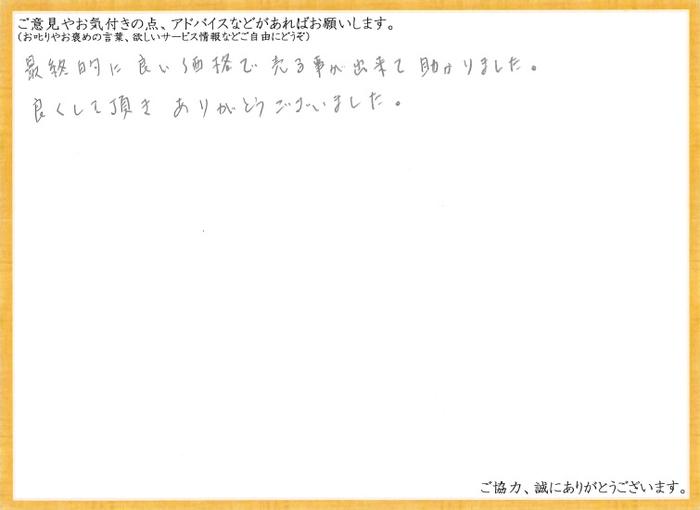 ご意見やお気付きの点、アドバイスなどがあればお願いします。
（お叱りやお褒めの言葉、欲しいサービス情報などご自由にどうぞ）
最終的に良い価格で売る事が出来て助かりました。
良くして頂きありがとうございました。
ご協力、誠にありがとうございます。